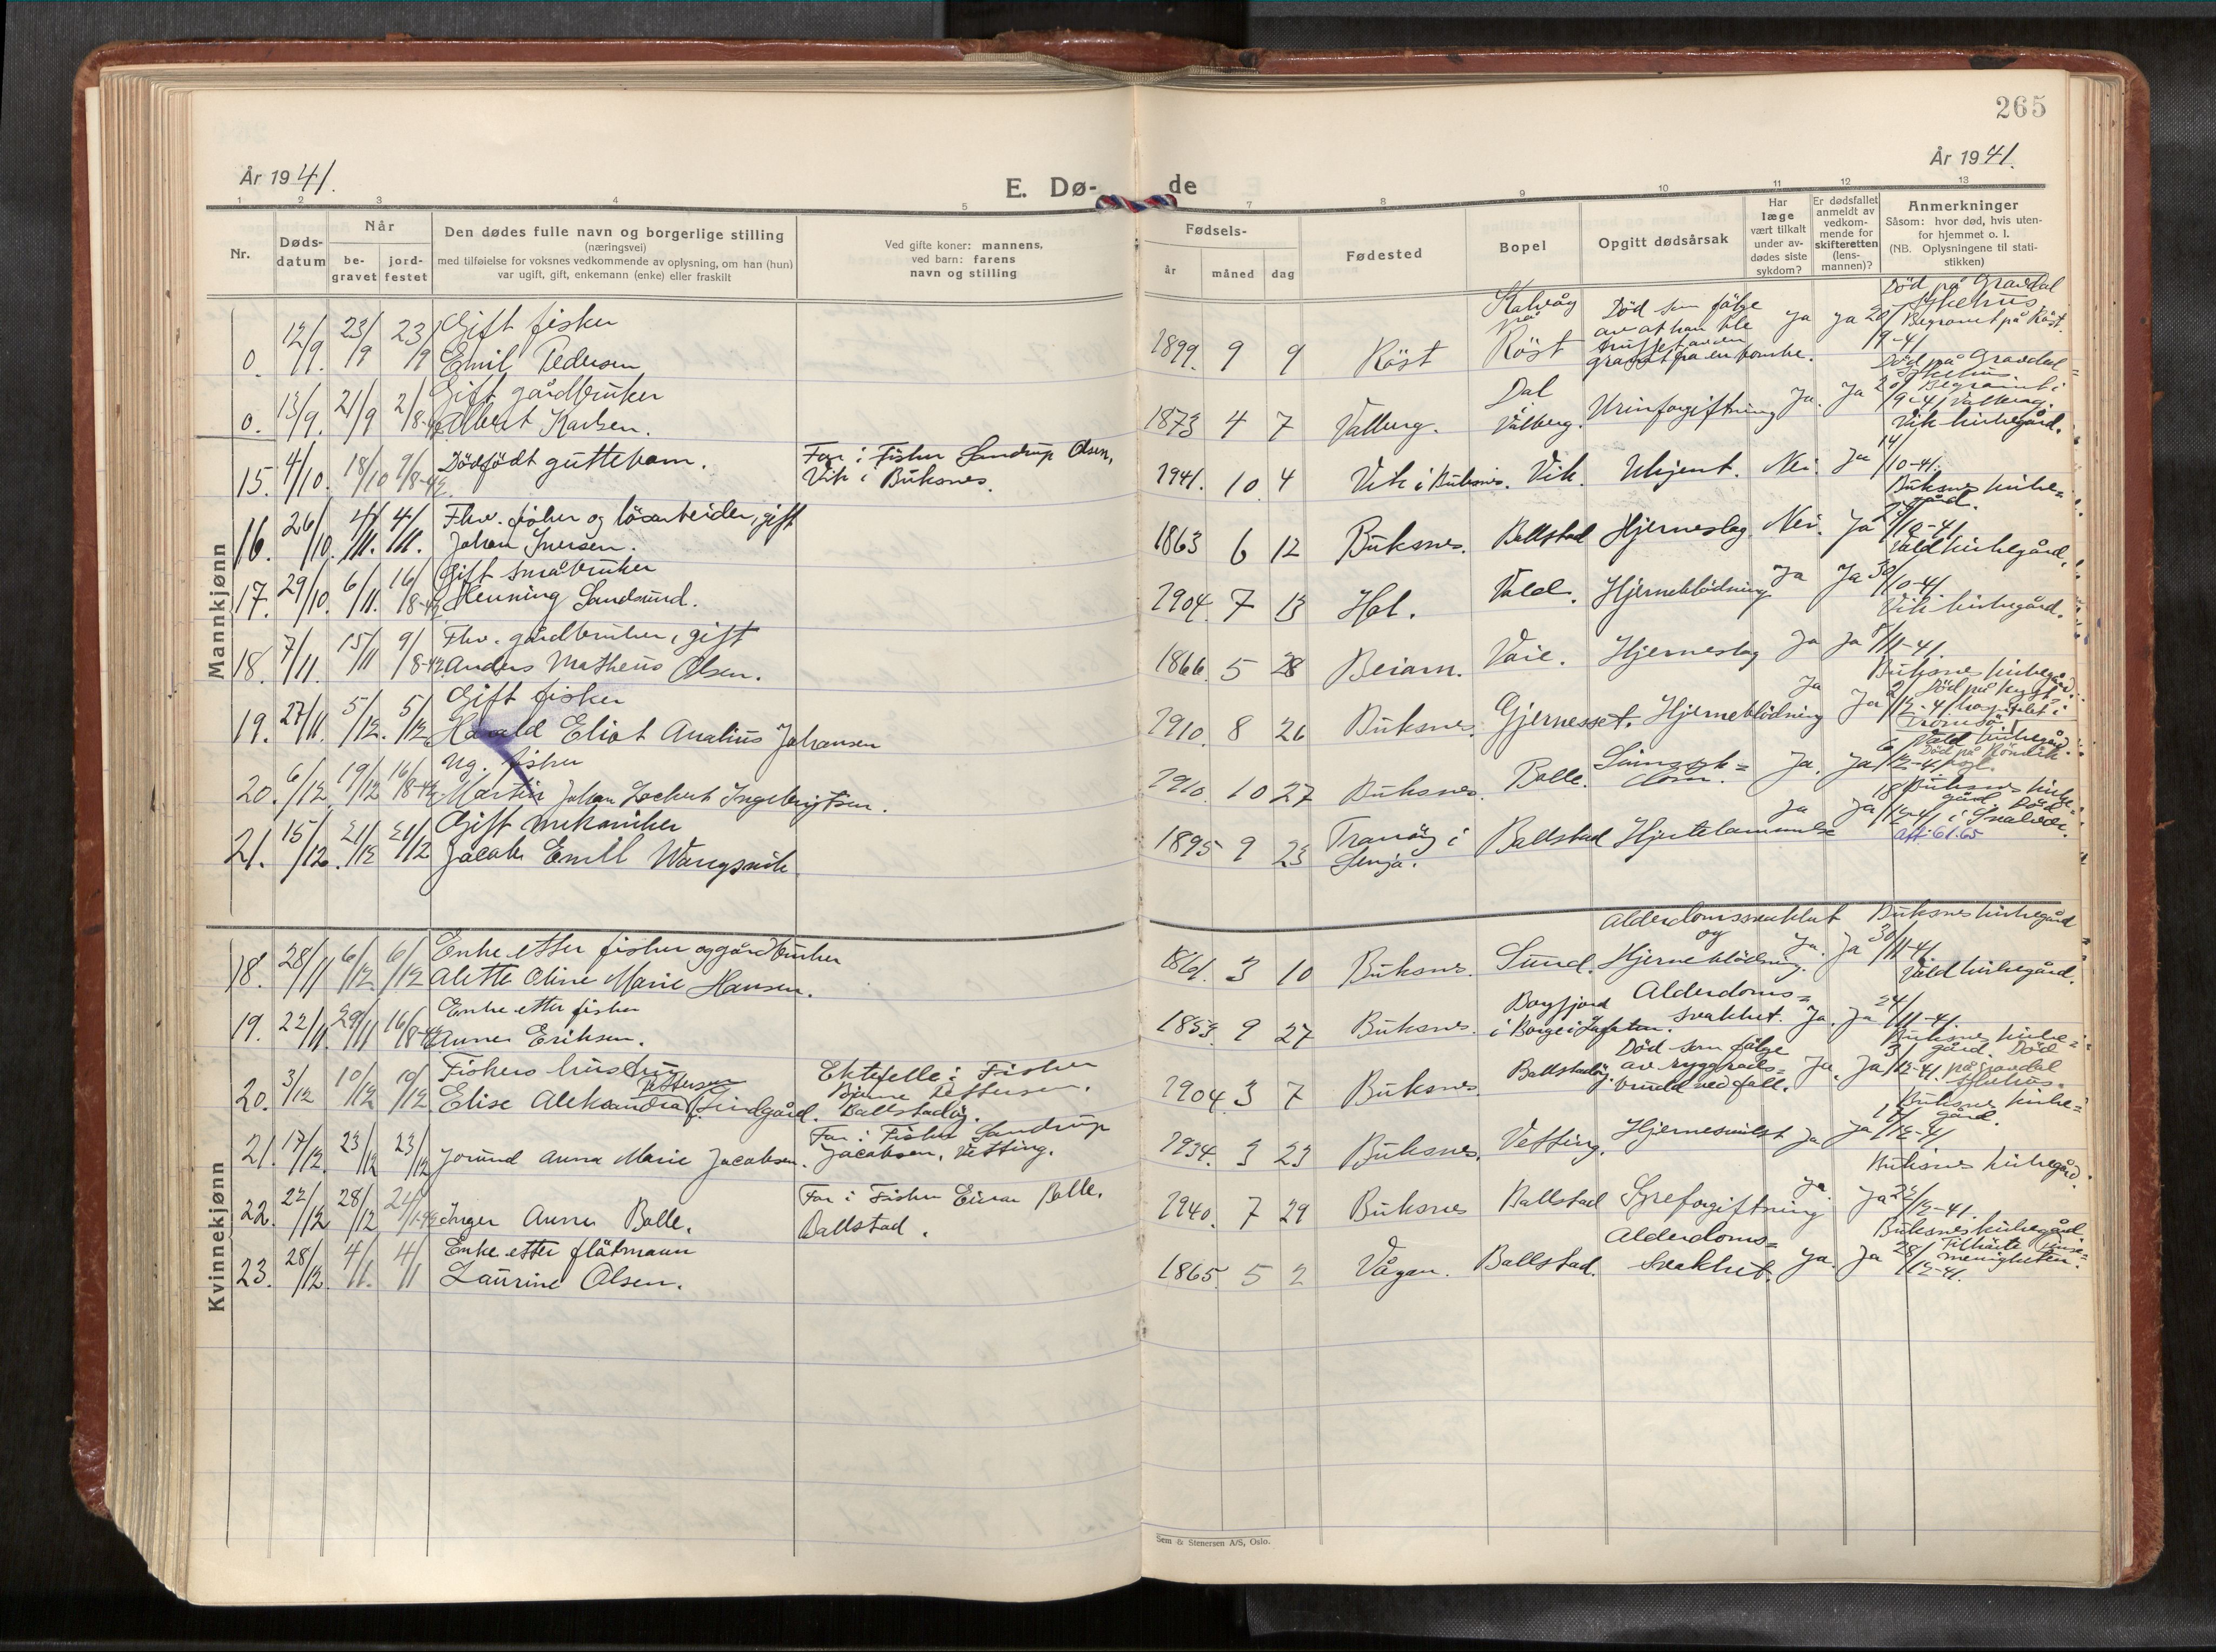 265
År 1941.
År 1941.
E. Dø-
de
1 2 3 4 5 7 8 9 10 11 12 13
Nr.
Døds-
datum
Når
be-
gravet
jord-
festet
Den dødes fulle navn og borgerlige stilling
(næringsvei)
med tilføielse for voksnes vedkommende av oplysning, om han (hun)
var ugift, gift, enkemann (enke) eller fraskilt
Ved gifte koner: mannens,
ved barn: farens
navn og stilling
Fødsels-
år
måned
dag
Fødested
Bopel
Opgitt dødsårsak
Har
læge
vært tilkalt
under av-
dødes siste
sykdom?
Er dødsfallet
anmeldt av
vedkom-
mende for
skifteretten
(lens-
mannen)?
Anmerkninger
Såsom: hvor død, hvis uten-
for hjemmet o. l.
(NB. Oplysningene til stati-
stikken)
Mannkjønn
0. 12/9. 23/9 23/9 Gift fisker
Emil Pedersen
1899. 9 9 Röst
Röst
Död som fölge
av at han ble
truffet av en
granat fra en bombe.
ja ja 20/9-41
Död på Gravdal
sykehus.
Begravet på Röst.
0. 13/9. 21/9 2/8-42 Gift gårdbruker
Albert Karlsen.
1873 4 7 Valberg. Dal
Valberg. Urinforgiftning Ja. Ja 20/9-41
Död på Gravdal
sykehus.
Begravet i
Valberg.
15. 4/10. 18/10 9/8-42. Dödfödt guttebarn. Far: Fisker Sandrup Olsen,
Vik i Buksnes.
1941. 10 4 Vik i Buksnes. Vik. Ukjent. Nei. Ja 14/10-41.
Vik kirkegård.
16. 26/10. 4/11. 4/11. Fhv. fisker og lösarbeider, gift
Johan Iversen.
1863 6 12 Buksnes. Ballstad Hjerneslag Nei. Ja
Buksnes kirke=
gård.
17. 29/10. 6/11. 16/8-42 Gift småbruker
Henning Sandsund.
1904. 7 13 Hol. Vald. Hjerneblödning Ja Ja 30/10-41.
Vald kirkegård.
18. 7/11. 15/11 9/8-42 Fhv. gårdbruker, gift
Anders Matheus Olsen.
1866. 5 28 Beiarn. Vaie. Hjerneslag Ja Ja
Vik kirkegård.
19. 27/11. 5/12. 5/12 Gift fisker
Harald Eliot Analius Johansen
1910. 8 26 Buksnes. Gjernesset. Hjerneblödning Ja Ja 2/12-41
Buksnes kirkegård.
Död på kyst-
hospitalet i
Tromsö.
20. 6/12. 19/12 16/8-42 Ug. fisker
Martin Johan Lockert Ingebrigtsen.
1910. 10 27 Buksnes. Balle. Sinnssyk=
dom. Ja. Ja 6/12-41
Vald kirkegård.
Död på Rönvik
asyl.
21. 15/12. 21/12 21/12 Gift mekaniker
Jacob Emil Wangsvik
1895 9 23 Tranöy i
Senja. Ballstad Hjertelammelse ja ja 18/12-41
Buksnes kirke=
gård. Död
i Svolvær.
att. 6.1.65
Kvinnekjønn
18. 28/11 6/12 6/12 Enke etter fisker og gårdbruker
Alette Oline Marie Hansen.
1861. 3 10 Buksnes. Sund. Alderdomssvakhet
og
Hjerneblödning. Ja. Ja 30/11-41.
Buksnes kirkegård
19. 22/11. 29/11 16/8-42 Enke etter fisker
Anna Eriksen.
1853. 9 27 Buksnes. Borgfjord
i Borge i Lofoten. Alderdoms=
svakhet. Ja. Ja 24/11-41.
Vald kirkegård.
20. 3/12 10/12 10/12 Fiskers hustru
Pettersen
Elise Aleksandra f. Lindgård. Ektefelle: Fisker
Bjarne Pettersen.
Ballstadöy.
1904 3 7 Buksnes. Ballstadöy. Död som fölge
av ryggrads=
brudd ved fall. Ja. Ja 3/12-41.
Buksnes kirke=
gård. Död
på Gravdal
sykehus.
21. 17/12. 23/12 23/12 Jorund Anna Marie Jacobsen. Far: Fisker Sandrup
Jacobsen, Vetting.
1934. 3 23 Buksnes. Vetting. Hjernesvulst Ja Ja
Buksnes kirke=
gård.
22. 22/12 28/12 Inger Anna Balle. Far: Fisker Einar Balle.
Ballstad.
1940. 7 29 Buksnes Ballstad Syreforgiftning Ja. Ja 22/12-41.
Buksnes kirkegård.
23. 28/12. 4/1. 4/1 Enke etter flåtmann
Laurine Olsen.
1865 5 2 Vågan. Ballstad. Alderdoms=
svakhet. Ja. Ja 28/12-41.
Buksnes kirkegård.
Tilhörte
menigheten.
Sem & Stenersen A/S, Oslo.